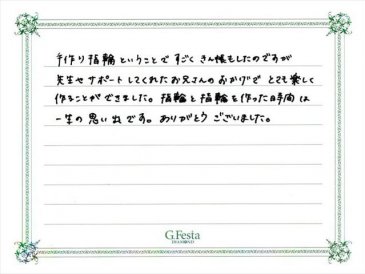 手作り指輪ということですごくきん帳もしたのですが
先生やサポートしてくれたお兄さんのおかげでとても楽しく
作ることができました。指輪と指輪を作った時間は
一生の思い出です。ありがとうございました。
G.Festa
DIAMOND